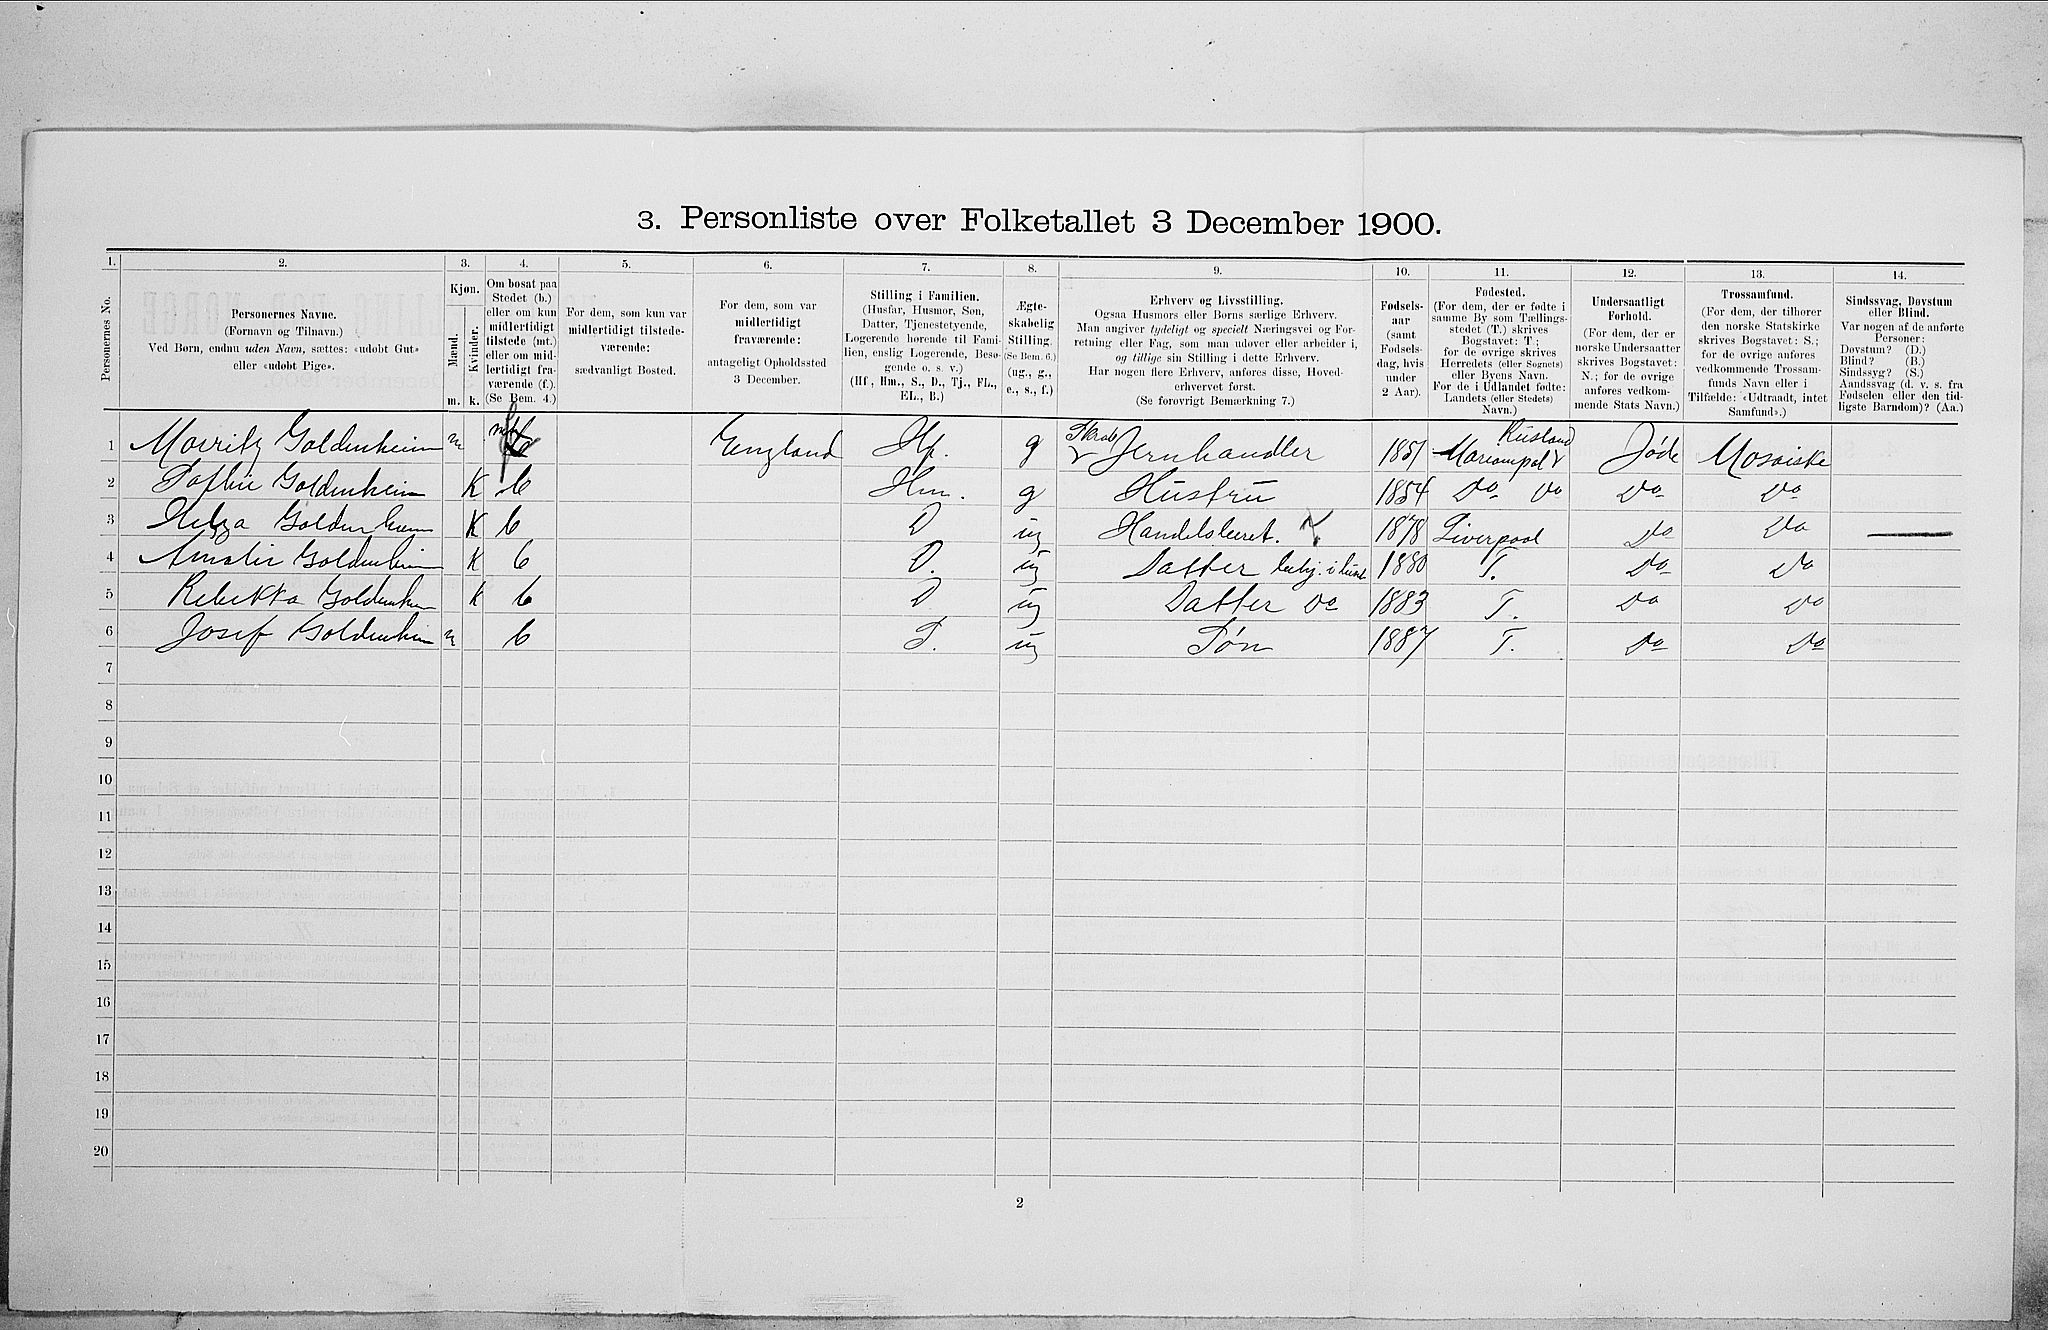 3. Personliste over Folketallet 3 December 1900.
1. 2. 3. 4. 5. 6. 7. 8. 9. 10. 11. 12. 13. 14.
Personernes No.
Personernes Navne.
(Fornavn og Tilnavn.)
Ved Børn, endnu uden Navn, sættes: «udøbt Gut»
eller «udøbt Pige».
Kjøn.
Mænd.
Kvinder.
m. k.
Om bosat paa
Stedet (b.)
eller om kun
midlertidigt
tilstede (mt.)
eller om mid-
lertidigt fra-
værende (f.).
(Se Bem. 4.)
For dem, som kun var
midlertidigt tilstede-
værende:
sædvanligt Bosted.
For dem, som var
midlertidigt
fraværende:
antageligt Opholdssted
3 December.
Stilling i Familien.
(Husfar, Husmor, Søn,
Datter, Tjenestetyende,
Logerende hørende til Fami-
lien, enslig Logerende, Besø-
gende o. s. v.)
(Hf., Hm., S., D., Tj., FL.,
EL., B.)
Ægte-
skabelig
Stilling.
(Se Bem. 6.)
(ug., g.,
e., s., f.)
Erhverv og Livsstilling.
Ogsaa Husmors eller Børns særlige Erhverv.
Man angiver tydeligt og specielt Næringsvei og For-
retning eller Fag, som man udover eller arbeider i,
og tillige sin Stilling i dette Erhverv.
Har nogen flere Erhverv, anføres disse, Hoved-
erhvervet først.
(Se forøvrigt Bemærkning 7.)
Fødsels-
aar
(samt
Fødsels-
dag, hvis
under
2 Aar).
Fødested.
(For dem, der er fødte i
samme By som Tællings-
stedet (T.) skrives
Bogstavet: T;
for de øvrige skrives
Herredets (eller Sognets)
eller Byens Navn.
For de i Udlandet fødte:
Landets (eller Stedets)
Navn.)
Undersaatligt
Forhold.
(For dem, der er
norske Undersaatter
skrives Bogstavet:
N.; for de øvrige
anføres vedkom-
mende Stats Navn.)
Trossamfund.
(For dem, der tilhører
den norske Statskirke
skrives Bogstavet: S.;
for de øvrige anføres
vedkommende Trossam-
funds Navn eller i
Tilfælde: «Udtraadt, intet
Samfund».)
Sindssvag, Døvstum
eller Blind.
Var nogen af de anførte
Personer:
Døvstum? (D.)
Blind? (B.)
Sindssyg? (S.)
Aandssvag (d. v. s. fra
Fødselen eller den tid-
ligste Barndom)? (Aa.)
1 Morritz Goldenheim m England Hf. g Jernhandler 1851 Mariampol Rusland Jøde Mosaiske
2 Sofhie Goldenheim K b Hm. g Hustru 1854 Do Do Do Do
3 Helga Goldenheim K b D ug Handelsberet. 1878 Liverpool Do Do
4 Amalie Goldenheim K b D. ug Datter behj. i huset 1880 T. Do Do
5 Rebekka Goldenheim K b D ug Datter Do 1883 T. Do Do
6 Josef Goldenheim m b S. ug Søn 1887 T. Do Do
7
8
9
10
11
12
13
14
15
16
17
18
19
20
2